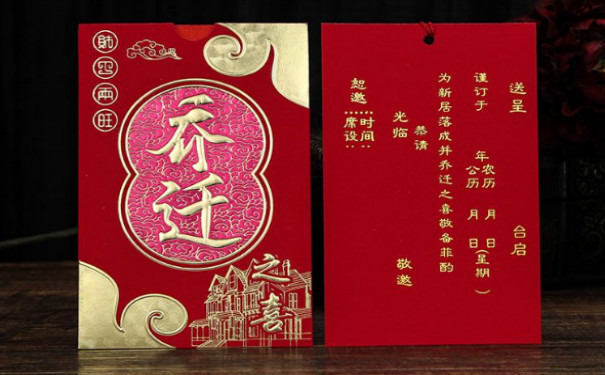 財 兩旺
乔迁
之喜
送呈 台启
谨订于 年
农历 月 日
公历 月 日(星期 )
为新居落成并乔迁之喜敬备菲酌
恭请
光临
敬邀
恕邀
时间:
席设: